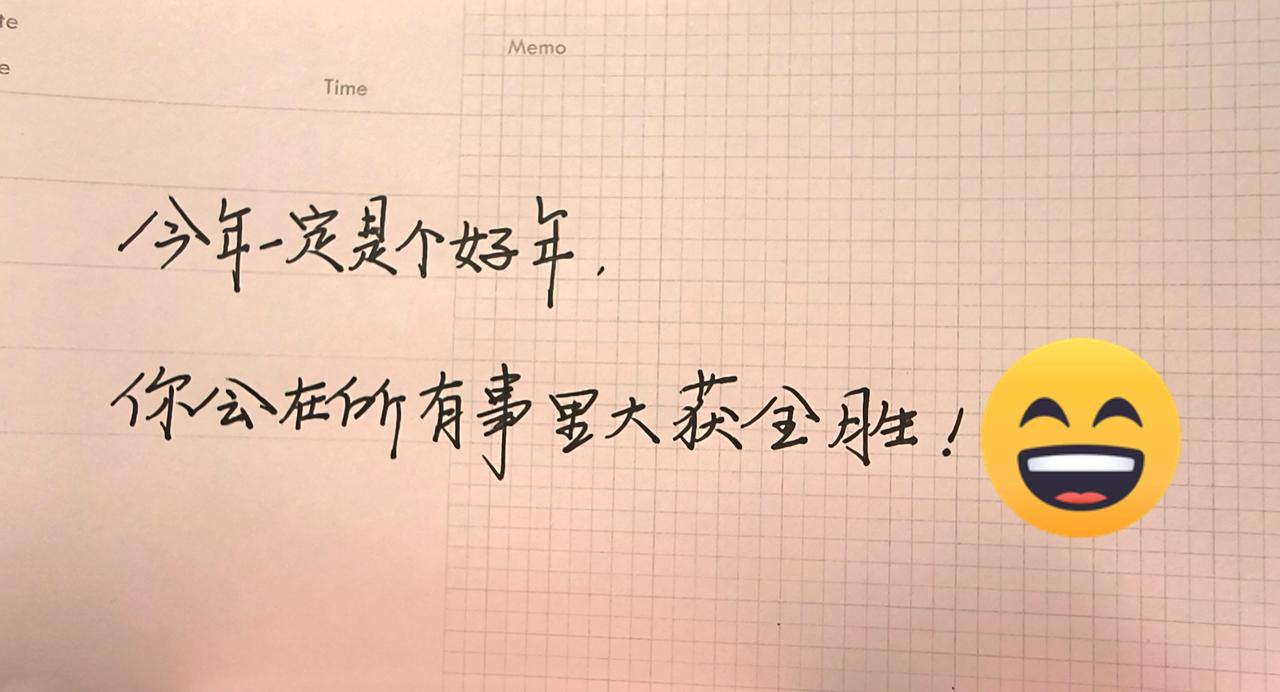 te
e
Time
Memo
今年一定是个好年,
你会在所有事里大获全胜!